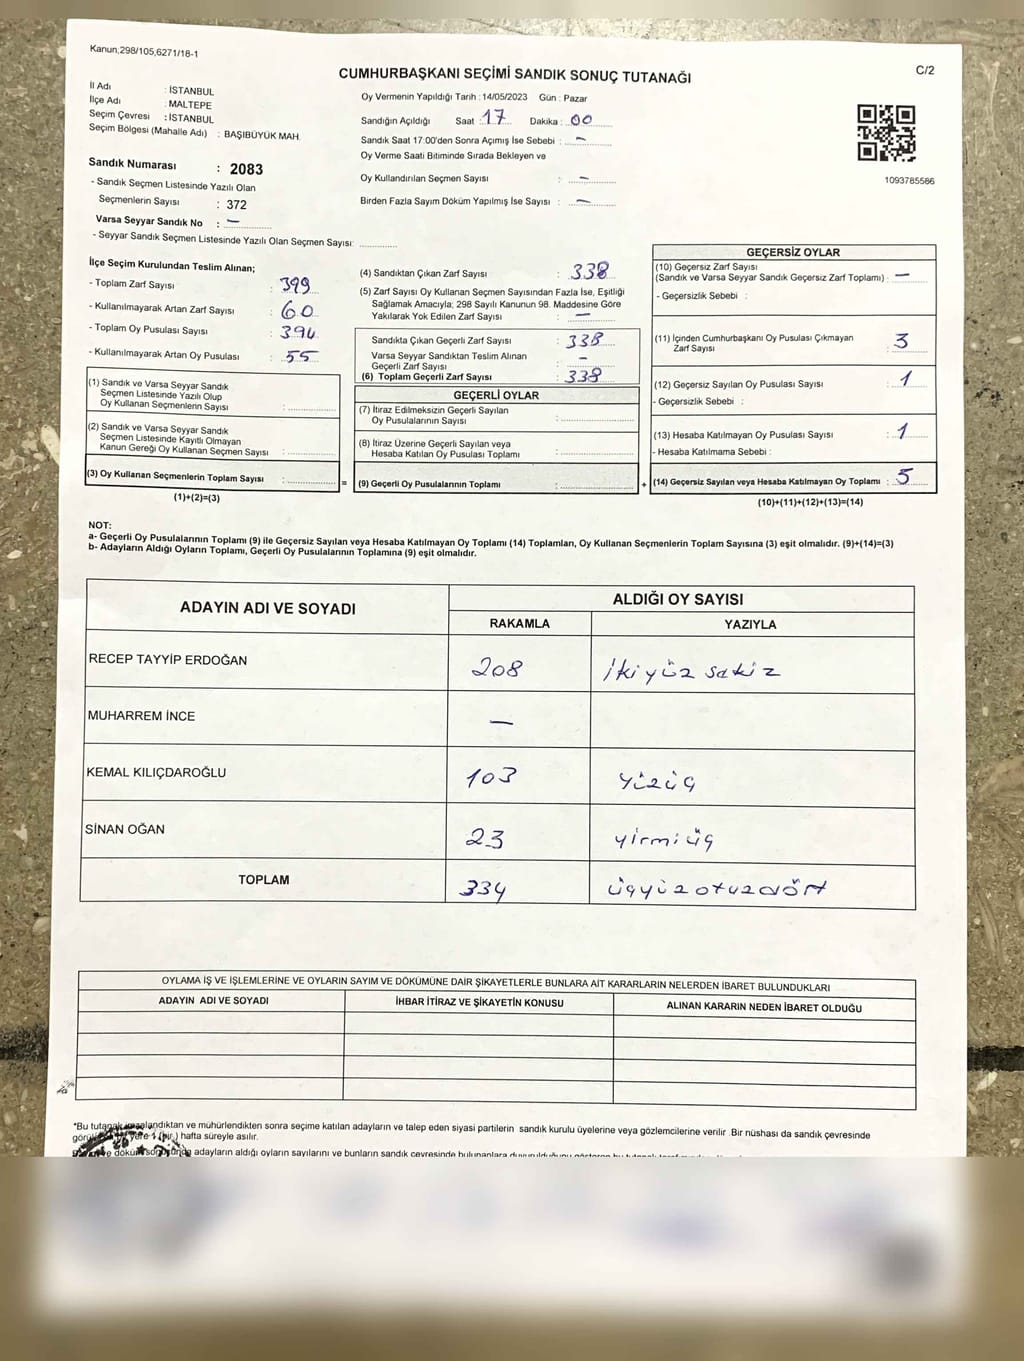 Kanun;298/105,6271/18-1
C/2
CUMHURBAŞKANI SEÇİMİ SANDIK SONUÇ TUTANAĞI
İl Adı : İSTANBUL
İlçe Adı : MALTEPE
Seçim Çevresi : İSTANBUL
Seçim Bölgesi (Mahalle Adı) : BAŞIBÜYÜK MAH.
Sandık Numarası : 2083
- Sandık Seçmen Listesinde Yazılı Olan
Seçmenlerin Sayısı : 372
Varsa Seyyar Sandık No : —
- Seyyar Sandık Seçmen Listesinde Yazılı Olan Seçmen Sayısı:
Oy Vermenin Yapıldığı Tarih : 14/05/2023 Gün : Pazar
Sandığın Açıldığı Saat : 17 Dakika : 00
Sandık Saat 17:00'den Sonra Açılmış İse Sebebi : —
Oy Verme Saati Bitiminde Sırada Bekleyen ve
Oy Kullandırılan Seçmen Sayısı : —
Birden Fazla Sayım Döküm Yapılmış İse Sayısı : —
1093785586
İlçe Seçim Kurulundan Teslim Alınan;
- Toplam Zarf Sayısı : 399
- Kullanılmayarak Artan Zarf Sayısı : 60
- Toplam Oy Pusulası Sayısı : 394
- Kullanılmayarak Artan Oy Pusulası : 55
(1) Sandık ve Varsa Seyyar Sandık
Seçmen Listesinde Yazılı Olup
Oy Kullanan Seçmenlerin Sayısı :
(2) Sandık ve Varsa Seyyar Sandık
Seçmen Listesinde Kayıtlı Olmayan
Kanun Gereği Oy Kullanan Seçmen Sayısı :
(3) Oy Kullanan Seçmenlerin Toplam Sayısı :
(1)+(2)=(3)
(4) Sandıktan Çıkan Zarf Sayısı : 338
(5) Zarf Sayısı Oy Kullanan Seçmen Sayısından Fazla İse, Eşitliği
Sağlamak Amacıyla; 298 Sayılı Kanunun 98. Maddesine Göre
Yakılarak Yok Edilen Zarf Sayısı : —
Sandıkta Çıkan Geçerli Zarf Sayısı : 338
Varsa Seyyar Sandıktan Teslim Alınan
Geçerli Zarf Sayısı : —
(6) Toplam Geçerli Zarf Sayısı : 338
GEÇERLİ OYLAR
(7) İtiraz Edilmeksizin Geçerli Sayılan
Oy Pusulalarının Sayısı :
(8) İtiraz Üzerine Geçerli Sayılan veya
Hesaba Katılan Oy Pusulası Toplamı :
= (9) Geçerli Oy Pusulalarının Toplamı : +
GEÇERSİZ OYLAR
(10) Geçersiz Zarf Sayısı
(Sandık ve Varsa Seyyar Sandık Geçersiz Zarf Toplamı) : —
- Geçersizlik Sebebi :
(11) İçinden Cumhurbaşkanı Oy Pusulası Çıkmayan
Zarf Sayısı : 3
(12) Geçersiz Sayılan Oy Pusulası Sayısı : 1
- Geçersizlik Sebebi :
(13) Hesaba Katılmayan Oy Pusulası Sayısı : 1
- Hesaba Katılmama Sebebi :
(14) Geçersiz Sayılan veya Hesaba Katılmayan Oy Toplamı : 5
(10)+(11)+(12)+(13)=(14)
NOT:
a- Geçerli Oy Pusulalarının Toplamı (9) ile Geçersiz Sayılan veya Hesaba Katılmayan Oy Toplamı (14) Toplamları, Oy Kullanan Seçmenlerin Toplam Sayısına (3) eşit olmalıdır. (9)+(14)=(3)
b- Adayların Aldığı Oyların Toplamı, Geçerli Oy Pusulalarının Toplamına (9) eşit olmalıdır.
ADAYIN ADI VE SOYADI ALDIĞI OY SAYISI
RAKAMLA YAZIYLA
RECEP TAYYİP ERDOĞAN 208 ikiyüz sekiz
MUHARREM İNCE —
KEMAL KILIÇDAROĞLU 103 yüzüç
SİNAN OĞAN 23 yirmiüç
TOPLAM 334 üçyüzotuzdört
OYLAMA İŞ VE İŞLEMLERİNE VE OYLARIN SAYIM VE DÖKÜMÜNE DAİR ŞİKAYETLERLE BUNLARA AİT KARARLARIN NELERDEN İBARET BULUNDUKLARI
ADAYIN ADI VE SOYADI İHBAR İTİRAZ VE ŞİKAYETİN KONUSU ALINAN KARARIN NEDEN İBARET OLDUĞU
*Bu tutanak alandıktan ve mühürlendikten sonra seçime katılan adayların ve talep eden siyasi partilerin sandık kurulu üyelerine veya gözlemcilerine verilir .Bir nüshası da sandık çevresinde
yere 1 (bir) hafta süreyle asılır.
adayların aldığı oyların sayılarını ve bunların sandık çevresinde bulunanlara